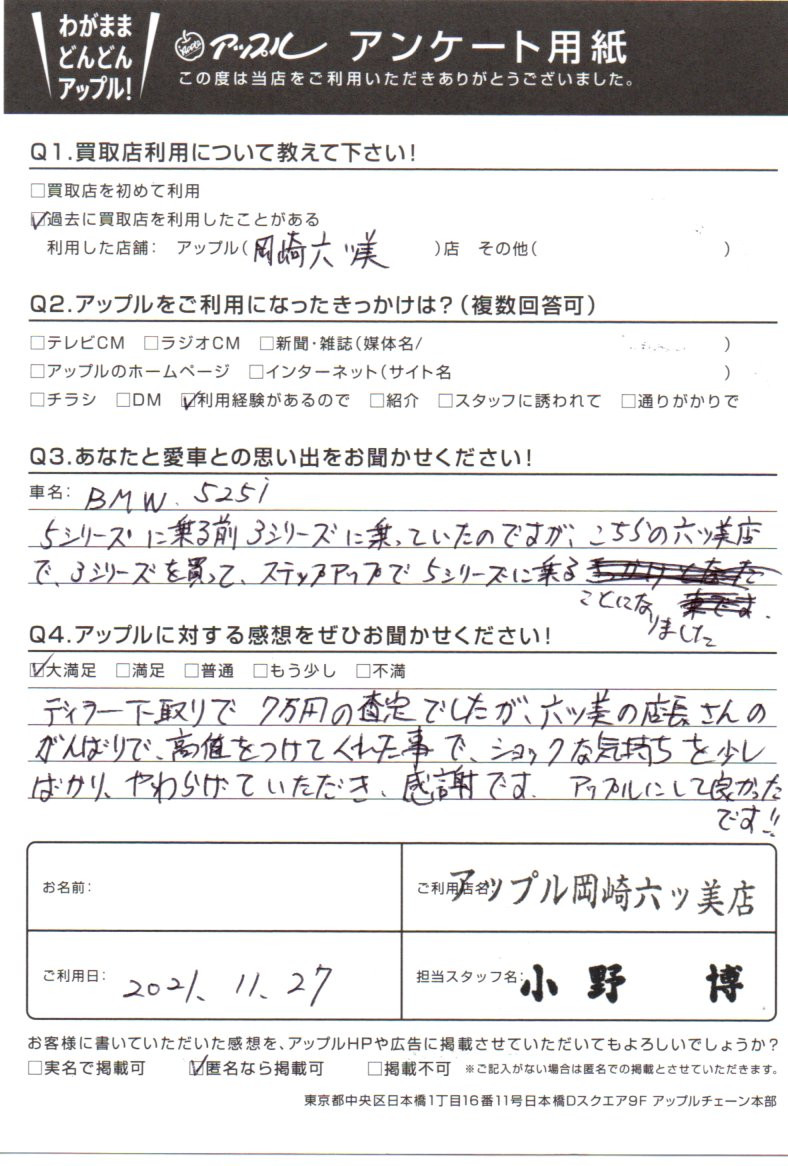 わがまま
どんどん
アップル!
アップル アンケート用紙
この度は当店をご利用いただきありがとうございました。
Q1.買取店利用について教えて下さい!
□買取店を初めて利用
☑過去に買取店を利用したことがある
利用した店舗: アップル(岡崎六ツ美)店 その他( )
Q2.アップルをご利用になったきっかけは?(複数回答可)
□テレビCM □ラジオCM □新聞・雑誌(媒体名/ )
□アップルのホームページ □インターネット(サイト名 )
□チラシ □DM ☑利用経験があるので □紹介 □スタッフに誘われて □通りがかりで
Q3.あなたと愛車との思い出をお聞かせください!
車名: BMW. 525i
5シリーズに乗る前3シリーズに乗っていたのですが、こちらの六ツ美店
で、3シリーズを買って、ステップアップで5シリーズに乗る
ことになりました
Q4.アップルに対する感想をぜひお聞かせください!
☑大満足 □満足 □普通 □もう少し □不満
ディラー下取りで7万円の査定でしたが、六ツ美の店長さんの
がんばりで、高値をつけてくれた事で、ショックな気持ちを少し
ばかり、やわらげていただき、感謝です. アップルにして良かった
です!!
お名前:
ご利用店名: アップル岡崎六ッ美店
ご利用日: 2021. 11. 27
担当スタッフ名: 小野 博
お客様に書いていただいた感想を、アップルHPや広告に掲載させていただいてもよろしいでしょうか?
□実名で掲載可 ☑匿名なら掲載可 □掲載不可 ※ご記入がない場合は匿名での掲載とさせていただきます。
東京都中央区日本橋1丁目16番11号日本橋Dスクエア9F アップルチェーン本部